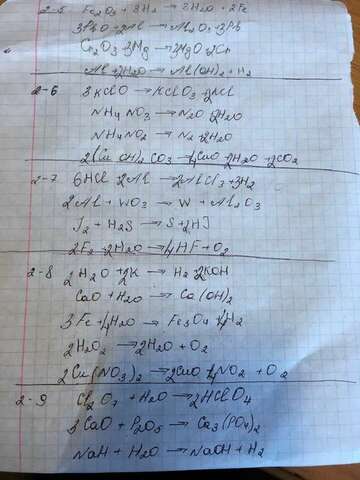 2-5 Fe2O3 + 3H2 → 3H2O + 2Fe
3PbO + 2Al → Al2O3 + 3Pb
Cr2O3 + 3Mg → 3MgO + 2Cr
Al + 2H2O → Al(OH)2 + H2
2-6 3KClO → KClO3 + 2KCl
NH4NO3 → N2O + 2H2O
NH4NO2 → N2 + 2H2O
2(CuOH)2CO3 → 4CuO + 2H2O + 2CO2
2-7 6HCl + 2Al → 2AlCl3 + 3H2
2Al + WO3 → W + Al2O3
J2 + H2S → S + 2HJ
2F2 + 2H2O → 4HF + O2
2-8 2H2O + 2K → H2 + 2KOH
CaO + H2O → Ca(OH)2
3Fe + 4H2O → Fe3O4 + 4H2
2H2O2 → 2H2O + O2
2Cu(NO3)2 → 2CuO + 4NO2 + O2
2-9 Cl2O7 + H2O → 2HClO4
3CaO + P2O5 → Ca3(PO4)2
NaH + H2O → NaOH + H2